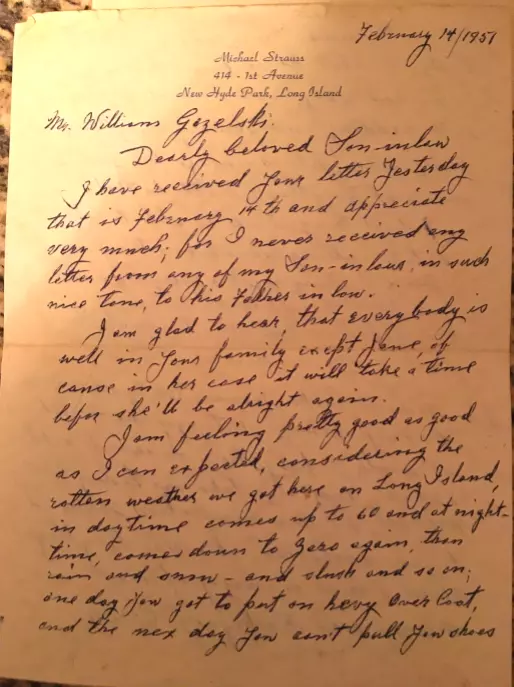 February 14/1951
Michael Strauss
414 - 1st Avenue
New Hyde Park, Long Island
Mr. William Gozelski.
Dearly beloved Son-inlaw
I have received your letter Yesterday
that is February 14th and appreciate
very much; for I never received any
letter from any of my Son-in laws, in such
nice tone, to his Father in low.
I am glad to hear, that everybody is
well in your family except Jane, of
cause in her case it will take a time
befor she'll be alright again.
I am feeling pretty good as good
as I can expected, considering the
rotten weather we got here on Long Island,
in daytime comes up to 60 and at night-
time, comes down to Zero again, than
rain and snow - and slush and so on;
one day you got to put on hevy Over Coat,
and the nex day you can't pull you shoes